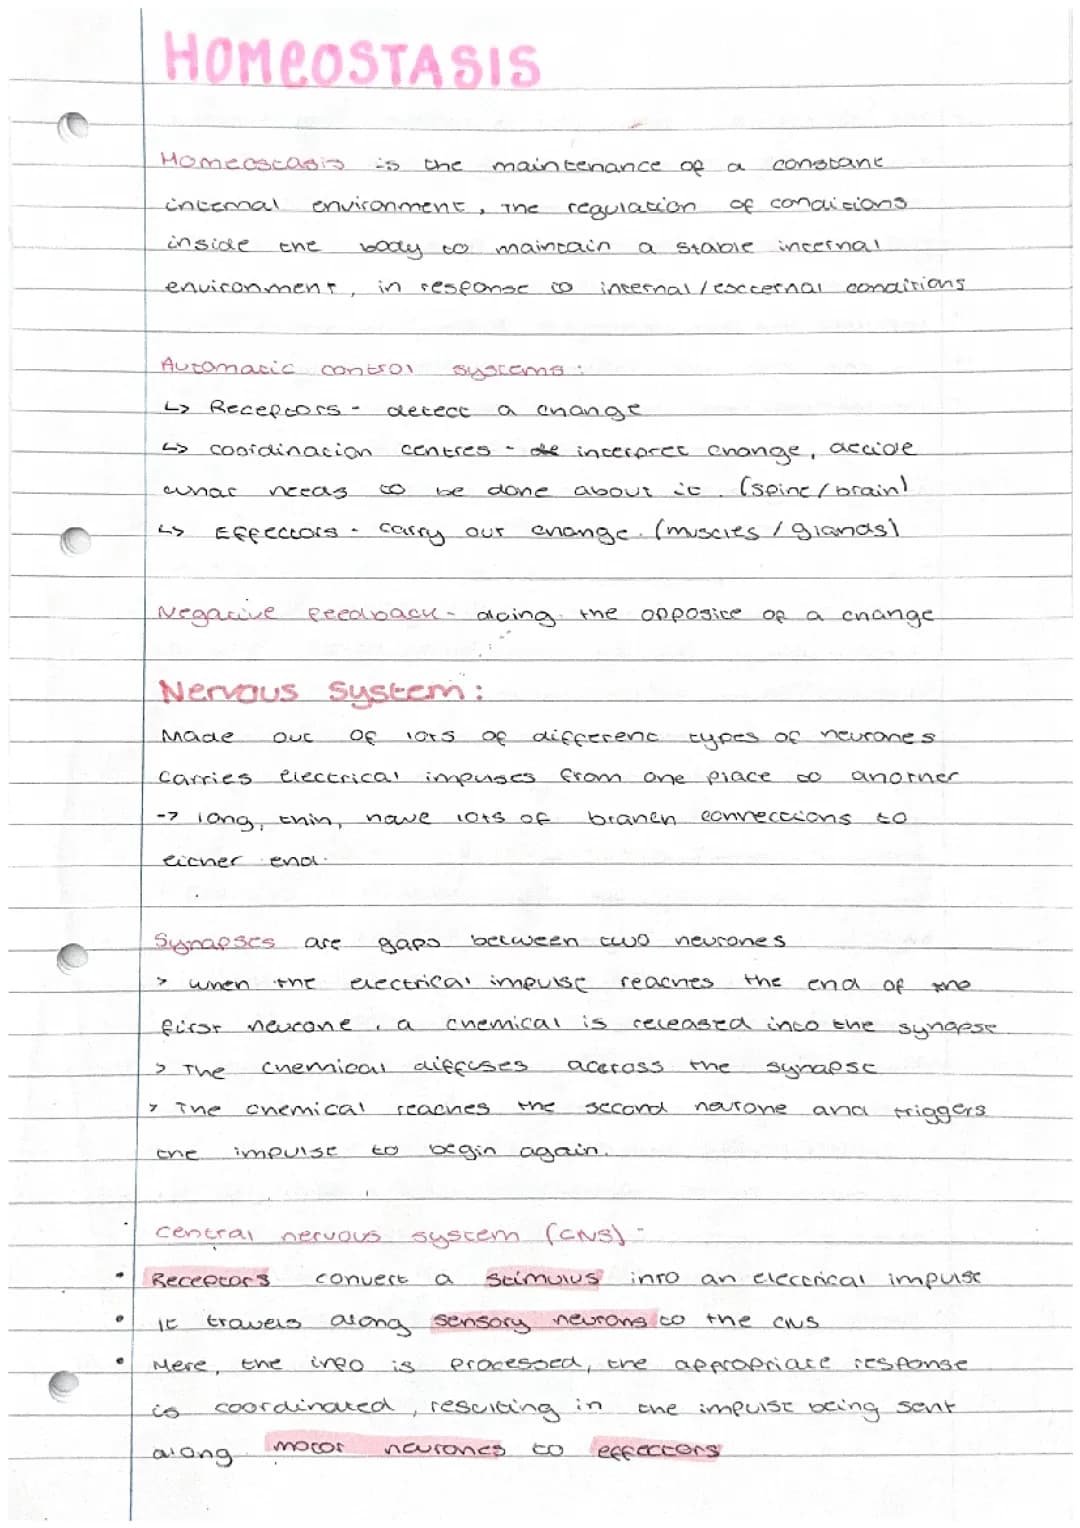 HOMEOSTASIS
Homeostasis is the maintenance of a constant
internal environment, The regulation of conditions
inside the body to maintain a stable internal
environment, in response to internal/exccernal conditions
Automatic control systems:
↳ Receptors - detect a change
↳ coordination centres - interpret change, decide
what needs to be done about it. (spine/brain)
↳ Effectors - carry out change. (muscles / glands)
Negative feedback - doing the opposite of a change
Nervous System:
Made out of lots of different types of neurones
Carries electrical impulses from one place to another
-> long, thin, have lots of branch connections to
either end.
Synapses are gaps between two neurones
> when the electrical impulse reaches the end of the
first neurone, a chemical is released into the synapse
> The chemical diffuses aceross the synapse
> The chemical reaches the second neurone and triggers
the impulse to begin again.
central nervous system (CNS) -
• Receptors convert a stimulus into an electrical impulse
• It travels along sensory neurons to the CNS
• Here, the info is processed, the appropriate response
is coordinated, resulting in the impulse being sent
along motor neurones to effectors